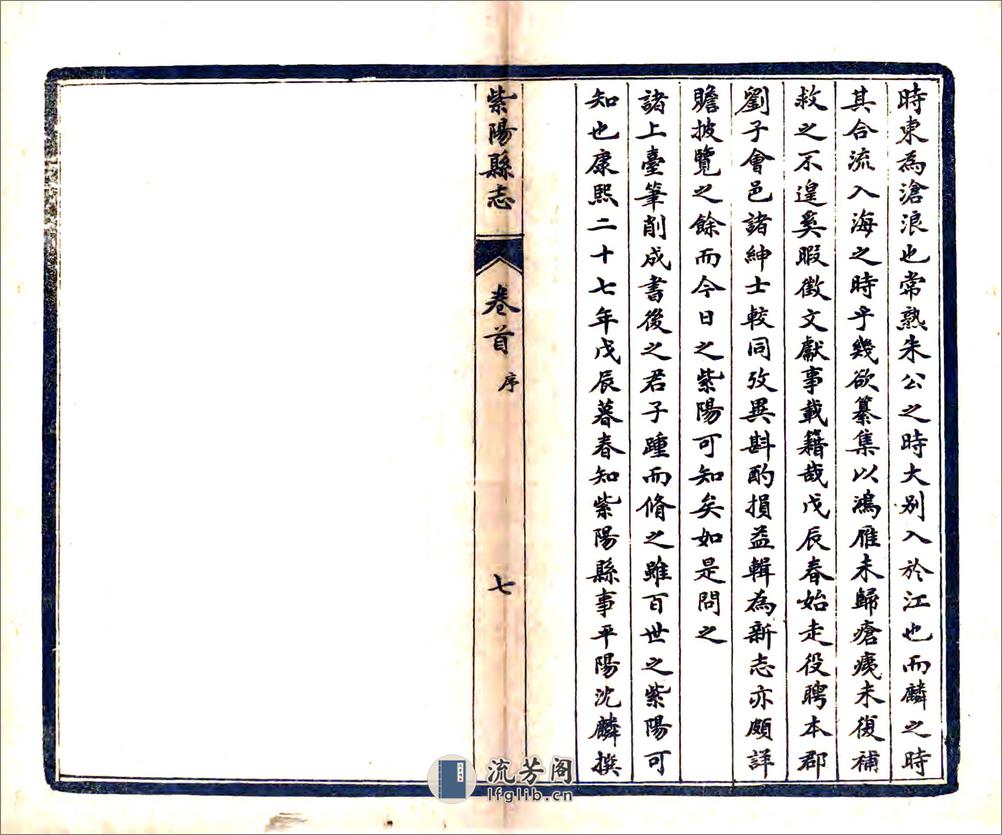 時東為滄浪也常熟朱公之時大別入於江也而麟之時
其合流入海之時乎幾欲纂集以鴻雁未歸瘡痍未復補
救之不遑奚暇徵文獻事載籍哉戊辰春始走役聘本郡
劉子會邑諸紳士較同攷異斟酌損益輯為新志亦頗詳
贍披覽之餘而今日之紫陽可知矣如是問之
諸上臺筆削成書後之君子踵而脩之雖百世之紫陽可
知也康熙二十七年戊辰暮春知紫陽縣事平陽沈麟撰
紫陽縣志
卷首
序
七
流芳阁
lfglib.cn